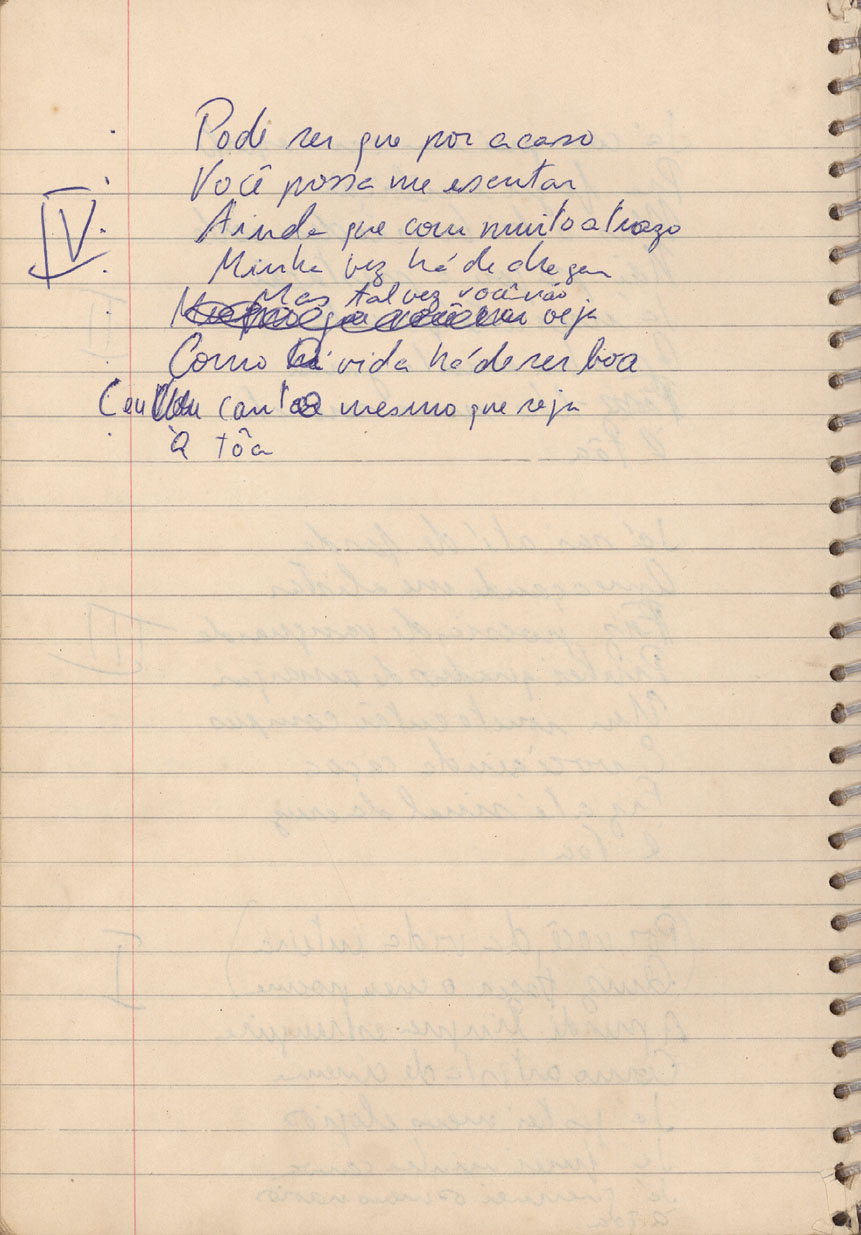 IV
Pode ser que por acaso
Você possa me escutar
Ainda que com muito atrazo
Minha vez há de chegar
Mas talvez você não
veja
Como a vida há de ser boa
canto mesmo que seja
À tôa